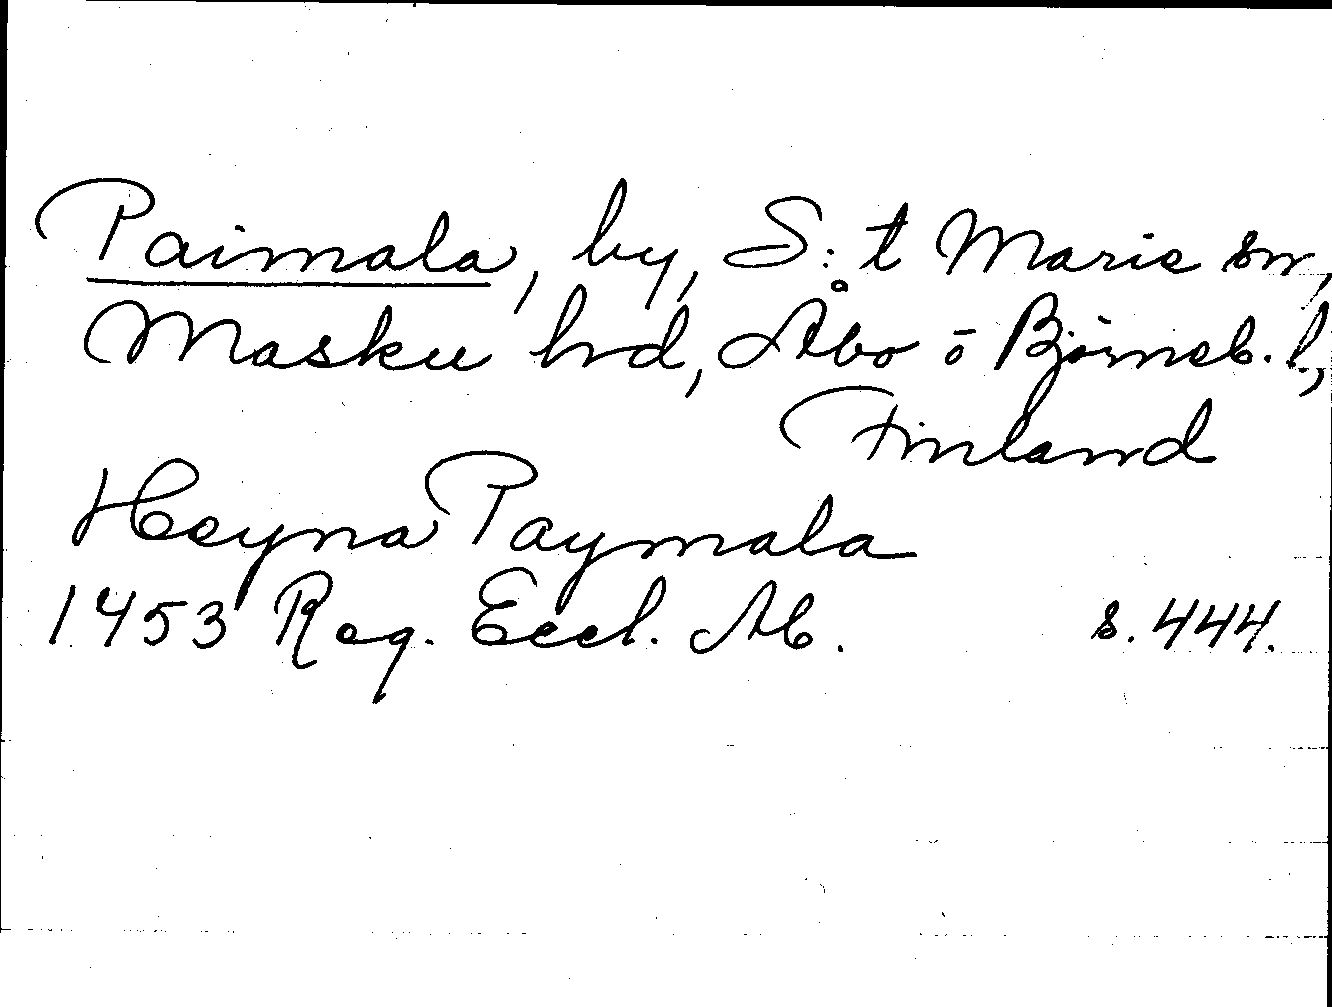 Paimala, by, S:t Marie sn,
Masku hrd, Åbo o Björneb. l.,
Finland
Heyna Paymala
1453 Reg. Eccl. Ab. s. 444.